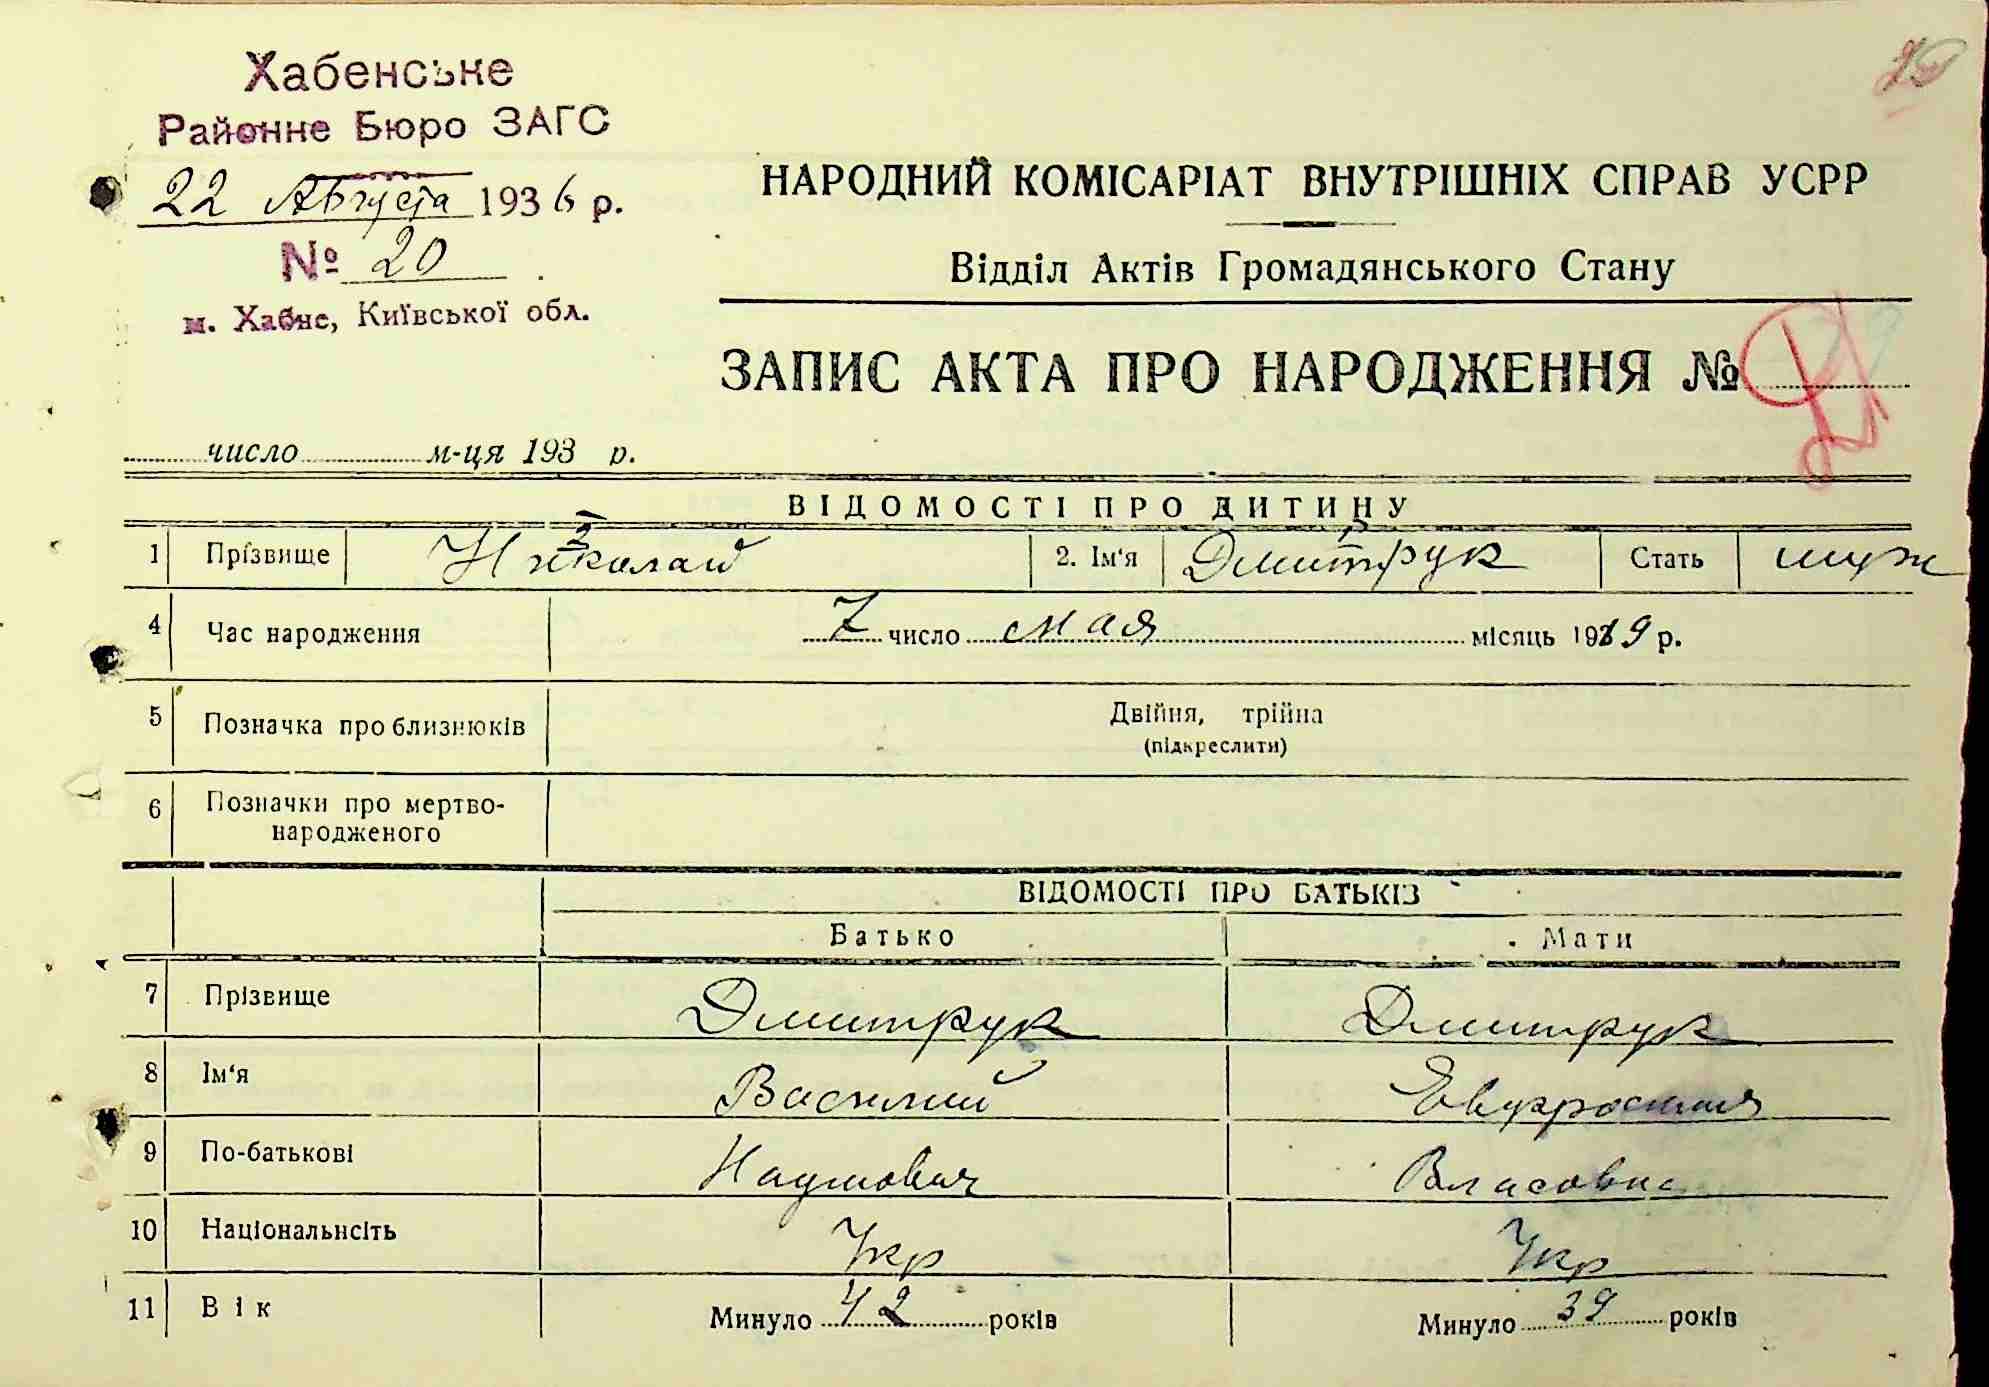 Хабенське
Районне Бюро ЗАГС
22 Августа 1936 р.
№ 20
м. Хабне, Київської обл.
НАРОДНИЙ КОМІСАРІАТ ВНУТРІШНІХ СПРАВ УСРР
Відділ Актів Громадянського Стану
ЗАПИС АКТА ПРО НАРОДЖЕННЯ №
число м-ця 193 р.
ВІДОМОСТІ ПРО ДИТИНУ
1 Прізвище 2 Николай 2. Ім'я 1 Дмитрук Стать муж
4 Час народження 7 число мая місяць 1919 р.
5 Позначка про близнюків Двійня, трійня
(підкреслити)
6 Позначки про мертво-
народженого
ВІДОМОСТІ ПРО БАТЬКІВ
Батько Мати
7 Прізвище Дмитрук Дмитрук
8 Ім'я Василий Евфросиния
9 По-батькові Наумович Власовна
10 Національнсіть Укр Укр
11 Вік Минуло 42 років Минуло 39 років